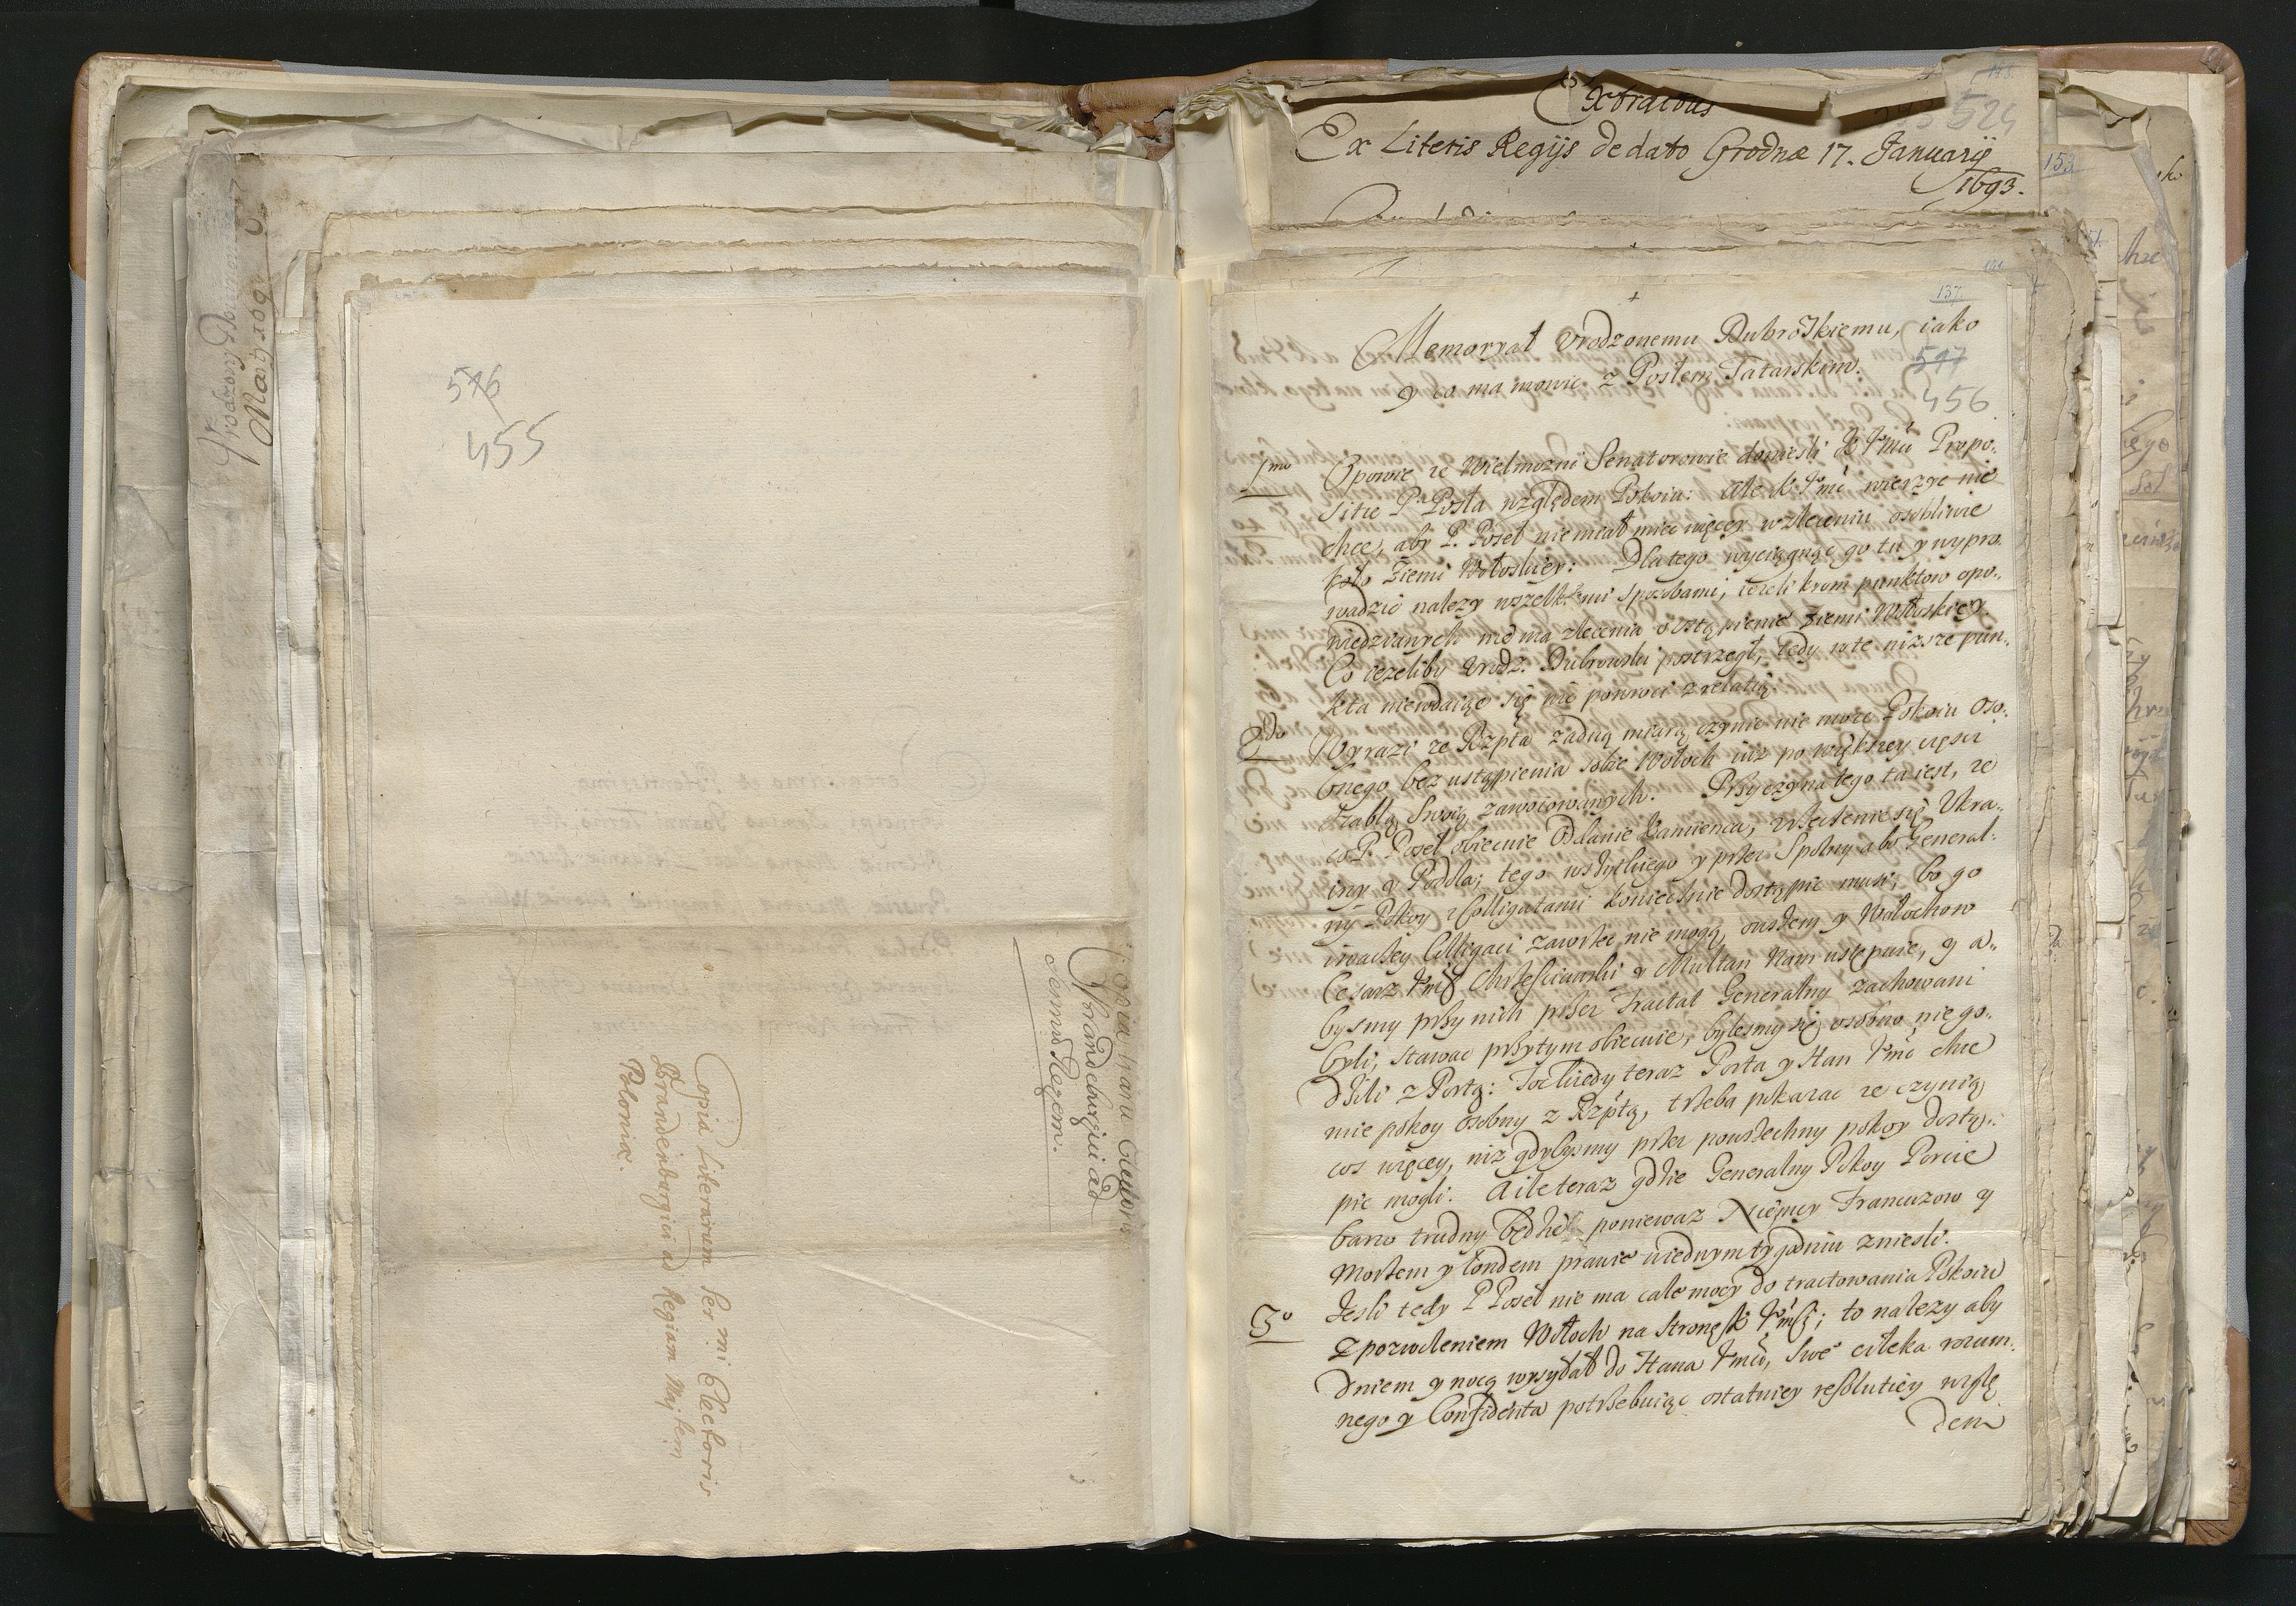 576
455
Copia Literarum Ser:mi Electoris
Brandeburgici ad Regiam Mtj tem
Poloniæ.
Copia Literarum Electoris
Brandeburgici ad
Serenis: Regem.
Extractus
Ex Literis Regijs de dato Grodnæ 17. Januarij
1693.
524
153
137.
Memoryał Vrodzonemu Dubrowskiemu, iako
y co ma mowić z Posłem Tatarskim.
517
456
1mo Opowie ze Wielmozni Senatorowie donieśli K Jmci Propo-
sitie P Posła względem Pokoiu: ale K Jmć wierzyc nie
chce, aby P. Poseł nie miał miec więcey w zleceniu osobliwie
koło Ziemi Wołoskiey: Dlatego wyciągnąc go tu y wypro-
wadzić nalezy wszelkiemi sposobami, iezeli krom punktow opo-
wiedzianych nie ma zlecenia o ustąpienie Ziemi Wołoskiey.
Co iezeliby Vrodz: Dubrowski postrzegł, tedy w te nizsze pun-
kta niewdaiąc się nie powroci z relatią.
2do Wyrazi ze Rzpta zadną miarą czynic nie moze Pokoiu oso-
bnego bez ustąpienia sobie Wołoch iuz po większey częsci
szablą Swoią zawoiowanych. Przyczyna tego ta iest, ze
co P. Poseł obiecuie Oddanie Kamienca, zrzeczenie się Vkra-
iny y Podola; tego wszytkiego y przez Spolny abo General-
ny Pokoy z Colligatami koniecznie dostąpic musi, bo go
inaczey Colligaci zawrzec nie mogą, owszem y Wołochow
Cesarz Jmć Chrzescianski y Multan Nam ustępuie, y a-
bysmy przy nich przez Tractat Generalny zachowani
byli, stawac przy tym obiecuie, bylesmy się osobno nie go-
dzili z Portą: Toc kiedy teraz Porta y Han Jmć chce
miec pokoy osobny z Rzptą, trzeba pokazac ze czynią
cos więcey, niz gdybysmy przez powszechny pokoy dostą-
pic mogli. A ile teraz gdzie Generalny Pokoy Porcie
barzo trudny będzie poniewaz Niemcy Francuzow y
Morzem y Londem prawie w iednym tygodniu zniesli.
3o Jesli tedy P Poseł nie ma cale mocy do tractowania Pokoiu
z pozwoleniem Wołoch na Stronę K Jmsci; to nalezy aby
dniem y nocą wysyłał do Hana Jmci, Swe° człeka rozum-
nego y Confidenta potrzebuiąc ostatniey resolutiey wzglę
dem